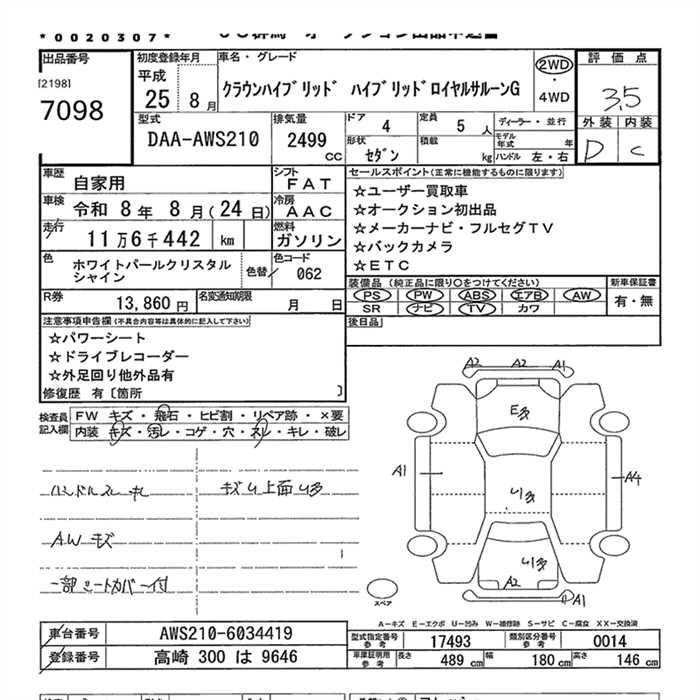 *0020307*
出品番号 初度登録年月 車名・グレード 2WD ・ 4WD 評価点
[2198]
7098
平成 25 8月
クラウンハイブリッド ハイブリッドロイヤルサルーンG
3.5
外装 内装
D C
型式 DAA-AWS210
排気量 2499 CC
ドア 4 定員 5人 ディーラー・並行
形状 セダン 積載 kg モデル年式 年
ハンドル 左・右
車歴 自家用 シフト FAT
車検 令和 8年 8月(24日) 冷房 AAC
走行 11万6千442 km 燃料 ガソリン
色 ホワイトパールクリスタルシャイン 色替 色コード 062
R券 13,860円 名変通知期限 月 日
セールスポイント(正常に機能するものに限ります)
☆ユーザー買取車
☆オークション初出品
☆メーカーナビ・フルセグTV
☆バックカメラ
☆ETC
装備品 (純正品に限り○をつけてください) 新車保証書
PS PW ABS エアB AW 有・無
SR ナビ TV カワ
後日品
注意事項申告欄(不具合内容等は具体的に記入して下さい)
☆パワーシート
☆ドライブレコーダー
☆外足回り他外品有
修復歴 有〔箇所 〕
検査員記入欄
FW キズ・飛石・ヒビ割・リペア跡・×要
内装 キズ・汚レ・コゲ・穴・スレ・キレ・破レ
ハンドルスレ 札
キズU上面U多
AWキズ
一部シートカバー付
A2 A2 A1
E多
A1 U多 A4
U多
A2
A1
スペア
A-キズ E-エクボ U-凹み W-補修跡 S-サビ C-腐食 XX-交換済
車台番号 AWS210-6034419
登録番号 高崎 300 は 9646
型式指定番号 参考 17493 類別区分番号 参考 0014
車庫証明用 参考 長さ 489 cm 幅 180 cm 高さ 146 cm